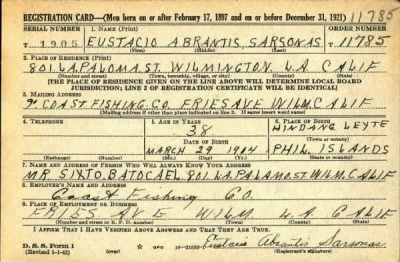 REGISTRATION CARD—(Men born on or after February 17, 1897 and on or before December 31, 1921) 11785
SERIAL NUMBER 1. NAME (Print) ORDER NUMBER
T 1905 EUSTACIO ABRANTIS SARSONAS T 11785
(First) (Middle) (Last)
2. PLACE OF RESIDENCE (Print)
801 LA. PALOMA ST. WILMINGTON, L.A. CALIF
(Number and street) (Town, township, village, or city) (County) (State)
[THE PLACE OF RESIDENCE GIVEN ON THE LINE ABOVE WILL DETERMINE LOCAL BOARD
JURISDICTION; LINE 2 OF REGISTRATION CERTIFICATE WILL BE IDENTICAL]
3. MAILING ADDRESS
COAST FISHING. CO. FRIES AVE WILM, CALIF
[Mailing address if other than place indicated on line 2. If same insert word same]
4. TELEPHONE 5. AGE IN YEARS 6. PLACE OF BIRTH
38 HINDANG LEYTE
DATE OF BIRTH (Town or county)
MARCH 29 1904 PHIL. ISLANDS
(Exchange) (Number) (Mo.) (Day) (Yr.) (State or country)
7. NAME AND ADDRESS OF PERSON WHO WILL ALWAYS KNOW YOUR ADDRESS
MR. SIXTO. BATOCAEL, 801 LA. PALOMA ST. WILM, CALIF
8. EMPLOYER'S NAME AND ADDRESS
Coast Fishing CO.
9. PLACE OF EMPLOYMENT OR BUSINESS
FRIES AVE WILM L.A CALIF
(Number and street or R. F. D. number) (Town) (County) (State)
I AFFIRM THAT I HAVE VERIFIED ABOVE ANSWERS AND THAT THEY ARE TRUE.
D. S. S. Form 1
(Revised 1-1-42) GPO Eustacio Abrantis Sarsonas